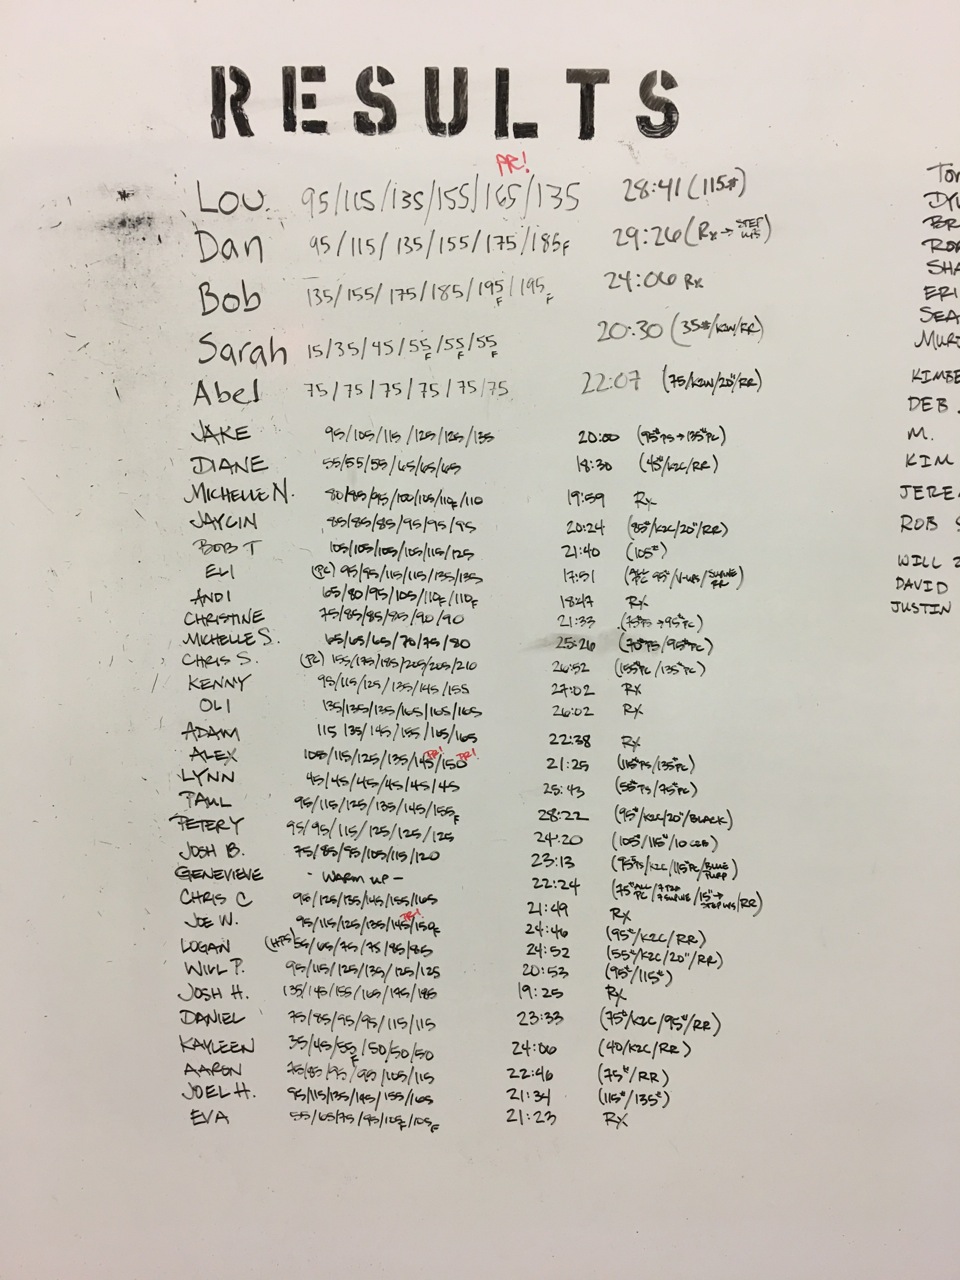 RESULTS
PR!
Lou 95/115/135/155/165/135 28:41 (115#)
Dan 95/115/135/155/175/185F 29:26 (Rx → STEP UPS)
Bob 135/155/175/185/195F/195F 24:06 Rx
Sarah 15/35/45/55F/55F/55F 20:30 (35#/K2W/RR)
Abel 75/75/75/75/75/75 22:07 (75/K2W/20"/RR)
JAKE 95/105/115/125/125/135 20:00 (95#PS → 135#PC)
DIANE 55/55/55/65/65/65 18:30 (45#/K2C/RR)
MICHELLE N. 80/85/95/100/105/110F/110 19:59 Rx
JAYCIN 85/85/85/95/95/95 20:24 (85#/K2C/20"/RR)
BOB T 105/105/105/105/115/125 21:40 (105#)
ELI (PC) 95/95/115/115/135/135 17:51 (ALL PC 95#/V-UPS/SUPINE RR)
ANDI 65/80/95/105/110F/110F 18:47 Rx
CHRISTINE 75/85/85/85/90/90 21:33 (75#PS → 95#PC)
MICHELLE S. 65/65/65/70/75/80 25:26 (70#PS/95#PC)
CHRIS S. (PC) 155/175/185/205/205/210 26:52 (155#PC/135#PC)
KENNY 95/115/125/135/145/155 27:02 Rx
OLI 135/135/135/165/165/165 26:02 Rx
ADAM 115 135/145/155/165/165 22:38 Rx
ALEX 105/115/125/135/145 PR!/150 PR! 21:25 (115#PS/135#PC)
LYNN 45/45/45/45/45/45 25:43 (55#PS/75#PC)
PAUL 95/115/125/135/145/155F 28:22 (95#/K2C/20"/BLACK)
PETER Y 95/95/115/125/125/125 24:20 (105#/115#/10 C2B)
JOSH B. 75/85/95/105/115/120 23:13 (95#PS/K2C/115#PC/BLUE PURP)
GENEVIEVE - WARM UP - 22:24 (75#ALL PC/7 T2B 7 SUPINE/15# → STEP UPS/RR)
CHRIS C 95/125/135/145/155/165 21:49 Rx
JOE W. 95/115/125/135/145 PR!/150F 24:46 (95#/K2C/RR)
LOGAN (HPS) 55/65/75/75/85/85 24:52 (55#/K2C/20"/RR)
WILL P. 95/115/125/135/125/125 20:53 (95#/115#)
JOSH H. 135/145/155/165/175/185 19:25 Rx
DANIEL 75/85/95/95/115/115 23:33 (75#/K2C/95#/RR)
KAYLEEN 35/45/55F/50/50/50 24:06 (40/K2C/RR)
AARON 75/85/95/95/105/115 22:46 (75#/RR)
JOEL H. 95/115/135/145/155/165 21:34 (115#/135#)
EVA 55/65/75/95/105F/105F 21:23 Rx
DEB
M.
KIM
ROB S
WILL
DAVID
JUSTIN